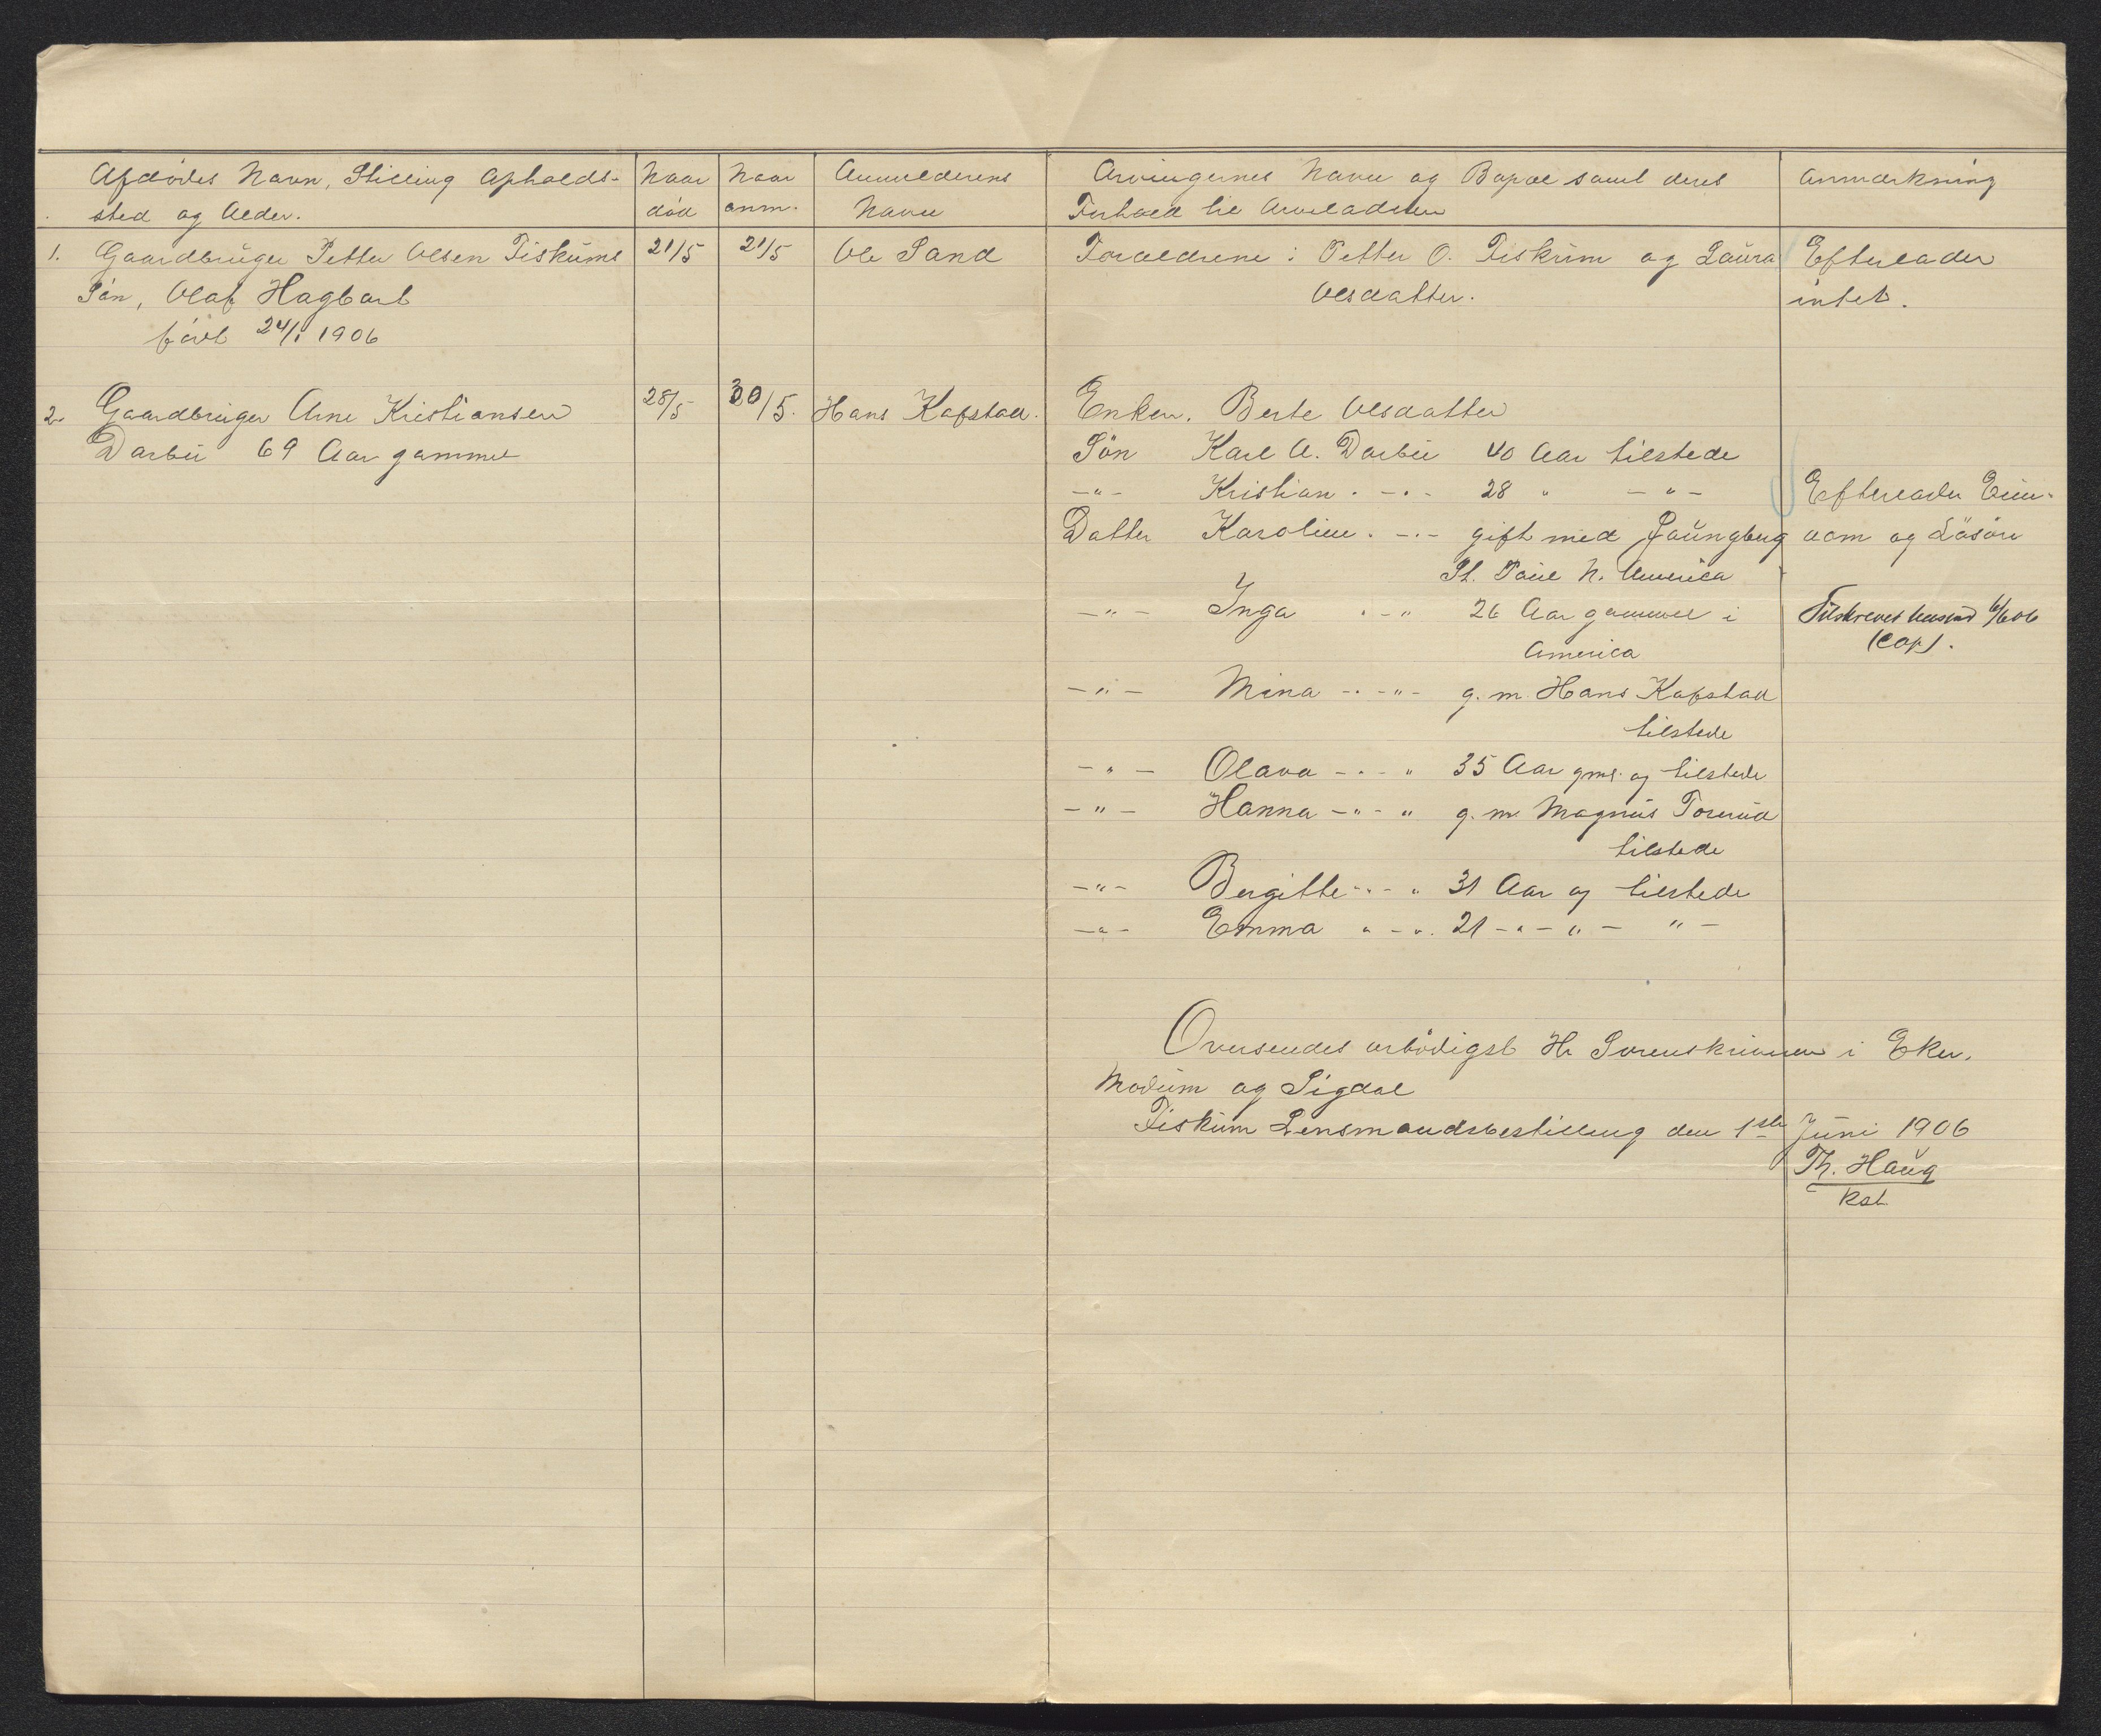 Afdødes Navn, Stilling Opholds-
sted og Alder.
Naar
død
Naar
anm.
Anmelderens
Navn
Arvingernes Navn og Bopæl samt deres
Forhold til Arveladeren
Anmærkning
1. Gaardbruger Petter Olsen Fiskums
Søn, Olaf Hagbart
født 24/1 1906
21/5
21/5
Ole Sand
Forældrene: Petter O. Fiskum og Laura
Olsdatter.
Efterlader
intet.
2. Gaardbruger Arne Kristiansen
Darbu 69 Aar gammel
28/5
30/5.
Hans Kopstad.
Enken, Berte Olsdatter
Søn Karl A. Darbu 40 Aar tilstede
-"- Kristian. -"- 28 " -"-
Datter Karoline. -"- gift med Ljaungberg
St. Paul N. America
-"- Inga "-" 26 Aar gammel i
America
-"- Mina -"-"- g. m. Hans Kopstad
tilstede
-"- Olava -"-" 35 Aar gml. og tilstede
-"- Hanna -"-" g. m. Magnus Torerud
tilstede
-"- Bergitte -"-" 31 Aar og tilstede
-"- Emma "-". 21 -"-"- "-
Efterlader Eien-
dom og Løsøre
Tilskrevet Lensmd 6/6 06
(Cop).
Oversendes ærbødigst Hr Sorenskriveren i Eker,
Modum og Sigdal
Fiskum Lensmandsbestilling den 1ste Juni 1906
Th. Haug
Kst.